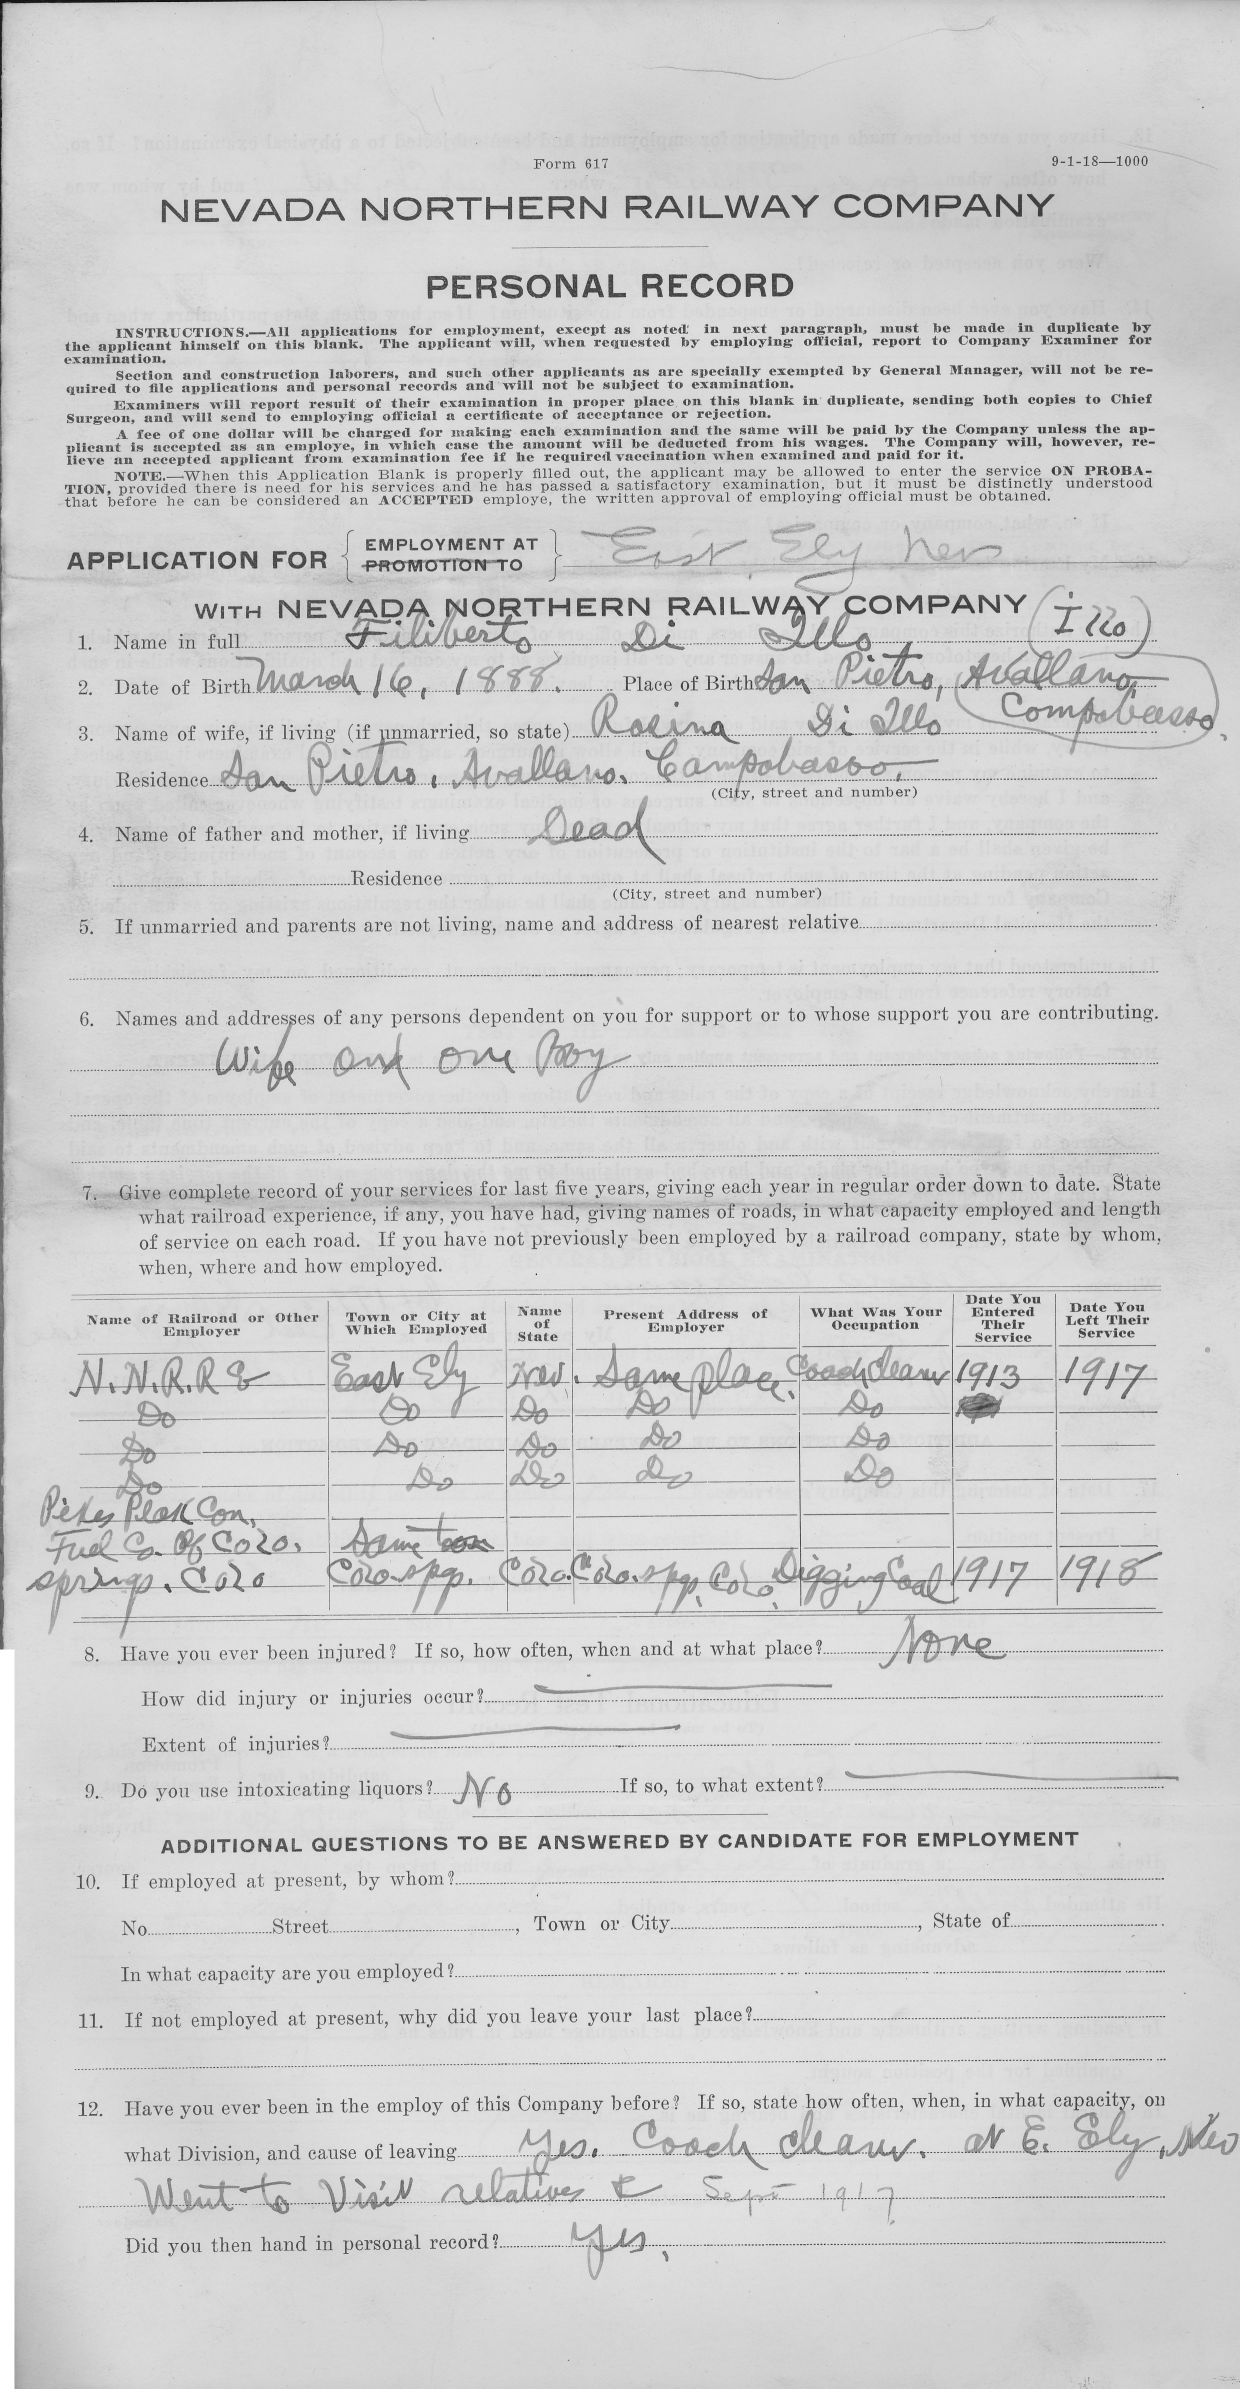 Form 617
9-1-18—1000
NEVADA NORTHERN RAILWAY COMPANY
PERSONAL RECORD
INSTRUCTIONS.—All applications for employment, except as noted in next paragraph, must be made in duplicate by
the applicant himself on this blank. The applicant will, when requested by employing official, report to Company Examiner for
examination.
Section and construction laborers, and such other applicants as are specially exempted by General Manager, will not be re-
quired to file applications and personal records and will not be subject to examination.
Examiners will report result of their examination in proper place on this blank in duplicate, sending both copies to Chief
Surgeon, and will send to employing official a certificate of acceptance or rejection.
A fee of one dollar will be charged for making each examination and the same will be paid by the Company unless the ap-
plicant is accepted as an employe, in which case the amount will be deducted from his wages. The Company will, however, re-
lieve an accepted applicant from examination fee if he required vaccination when examined and paid for it.
NOTE.—When this Application Blank is properly filled out, the applicant may be allowed to enter the service ON PROBA-
TION, provided there is need for his services and he has passed a satisfactory examination, but it must be distinctly understood
that before he can be considered an ACCEPTED employe, the written approval of employing official must be obtained.
APPLICATION FOR { EMPLOYMENT AT PROMOTION TO } East Ely Nev
WITH NEVADA NORTHERN RAILWAY COMPANY
1. Name in full Filiberto Di Illo (Illo)
2. Date of Birth March 16, 1888. Place of Birth San Pietro, Avallano,
Compobasso,
3. Name of wife, if living (if unmarried, so state) Rosina Di Illo
Residence San Pietro, Avallano, Campobasso,
(City, street and number)
4. Name of father and mother, if living Dead
Residence
(City, street and number)
5. If unmarried and parents are not living, name and address of nearest relative
6. Names and addresses of any persons dependent on you for support or to whose support you are contributing.
Wife and one Boy
7. Give complete record of your services for last five years, giving each year in regular order down to date. State
what railroad experience, if any, you have had, giving names of roads, in what capacity employed and length
of service on each road. If you have not previously been employed by a railroad company, state by whom,
when, where and how employed.
Name of Railroad or Other Employer Town or City at Which Employed Name of State Present Address of Employer What Was Your Occupation Date You Entered Their Service Date You Left Their Service
N.N.R.R Co East Ely Nev. Same place. Coach cleaner 1913 1917
Do Do Do Do Do
Do Do Do Do Do
Do Do Do Do Do
Pikes Peak Con.
Fuel Co. Of Colo. Same
springs. Colo Colo. spgs. Colo. Colo. spgs, Colo. Digging Coal 1917 1918
8. Have you ever been injured? If so, how often, when and at what place? None
How did injury or injuries occur?
Extent of injuries?
9. Do you use intoxicating liquors? No If so, to what extent?
ADDITIONAL QUESTIONS TO BE ANSWERED BY CANDIDATE FOR EMPLOYMENT
10. If employed at present, by whom?
No. Street, Town or City, State of
In what capacity are you employed?
11. If not employed at present, why did you leave your last place?
12. Have you ever been in the employ of this Company before? If so, state how often, when, in what capacity, on
what Division, and cause of leaving Yes. Coach cleaner. at E. Ely, Nev
Went to Visit relatives Sept 1917
Did you then hand in personal record? Yes.